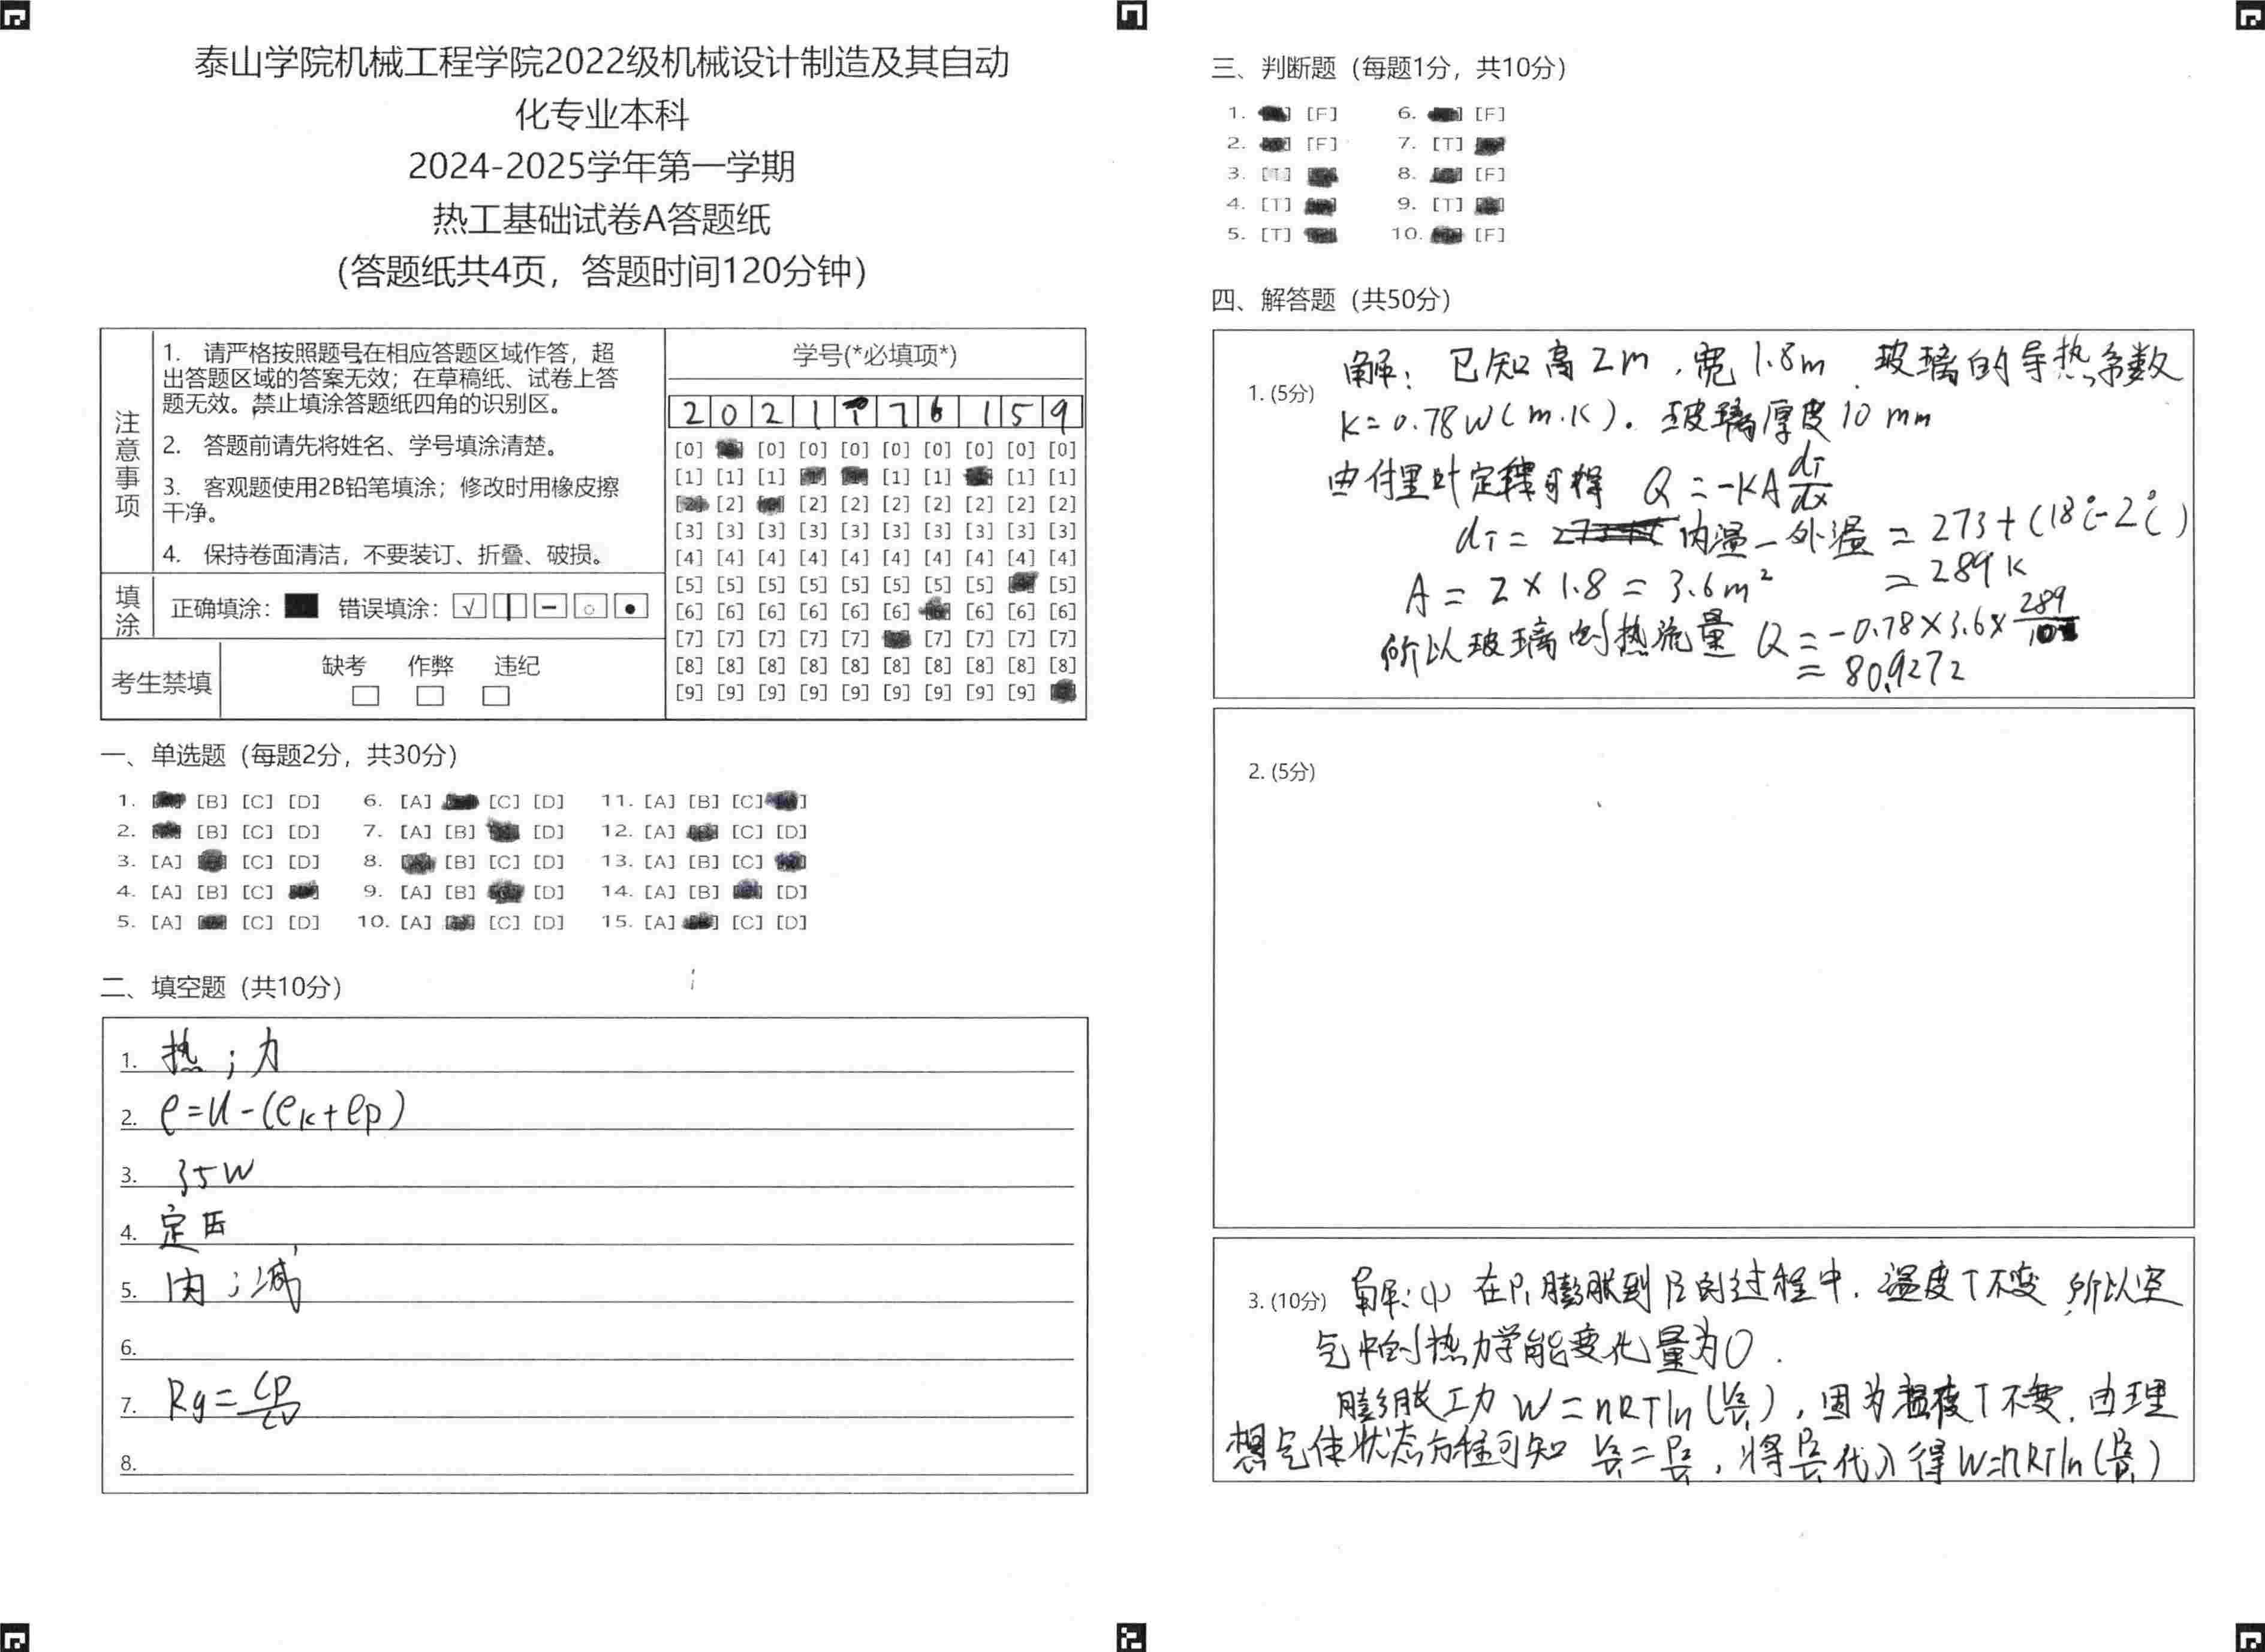 泰山学院机械工程学院2022级机械设计制造及其自动
化专业本科
2024-2025学年第一学期
热工基础试卷A答题纸
(答题纸共4页，答题时间120分钟)
注意事项
1. 请严格按照题号在相应答题区域作答，超
出答题区域的答案无效；在草稿纸、试卷上答
题无效。禁止填涂答题纸四角的识别区。
2. 答题前请先将姓名、学号填涂清楚。
3. 客观题使用2B铅笔填涂；修改时用橡皮擦
干净。
4. 保持卷面清洁，不要装订、折叠、破损。
填涂
正确填涂： 错误填涂：
考生禁填
缺考 作弊 违纪
学号(*必填项*)
2 0 2 1 1 7 6 1 5 9
[0] [0] [0] [0] [0] [0] [0] [0] [0]
[1] [1] [1] [1] [1] [1] [1]
[2] [2] [2] [2] [2] [2] [2] [2]
[3] [3] [3] [3] [3] [3] [3] [3] [3] [3]
[4] [4] [4] [4] [4] [4] [4] [4] [4] [4]
[5] [5] [5] [5] [5] [5] [5] [5] [5]
[6] [6] [6] [6] [6] [6] [6] [6] [6]
[7] [7] [7] [7] [7] [7] [7] [7] [7]
[8] [8] [8] [8] [8] [8] [8] [8] [8] [8]
[9] [9] [9] [9] [9] [9] [9] [9] [9]
一、单选题（每题2分，共30分）
1. [B] [C] [D] 6. [A] [C] [D] 11. [A] [B] [C]
2. [B] [C] [D] 7. [A] [B] [D] 12. [A] [C] [D]
3. [A] [C] [D] 8. [B] [C] [D] 13. [A] [B] [C]
4. [A] [B] [C] 9. [A] [B] [D] 14. [A] [B] [D]
5. [A] [C] [D] 10. [A] [C] [D] 15. [A] [C] [D]
二、填空题（共10分）
1. 热；力
2. e=u-(ek+ep)
3. 35W
4. 定压
5. 内；减
6.
7. Rg=cp/cv
8.
三、判断题（每题1分，共10分）
1. [F] 6. [F]
2. [F] 7. [T]
3. [T] 8. [F]
4. [T] 9. [T]
5. [T] 10. [F]
四、解答题（共50分）
1. (5分) 解：已知高2m，宽1.8m．玻璃的导热系数
K=0.78W(m.K)．玻璃厚度10mm
由付里叶定律可得 Q=-KA dT/dx
dT= 内温-外温=273+(18℃-2℃)
=289K
A=2×1.8=3.6m²
所以玻璃的热流量 Q=-0.78×3.6×289/10
=80.9272
2. (5分)
3. (10分) 解：(1) 在P1膨胀到P2的过程中．温度T不变 所以空
气中的热力学能变化量为0．
膨胀工力 W=nRTln(V2/V1)，因为温度T不变．由理
想气体状态方程可知 V2/V1=P2/P1，将P2/P1代入得W=nRTln(P2/P1)